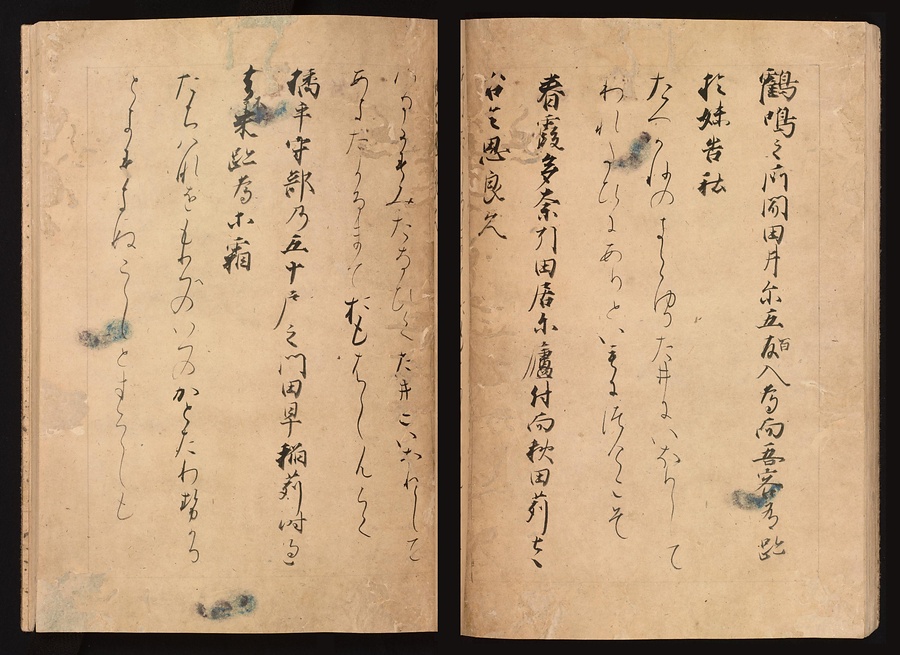 鸖鳴之所聞田井尓五百入為而吾客有跡
於妹告社
たつかねのきこゆたゐにいほりして
われたひにありといもにつけこそ
春霞多奈引田居尓廬付而秋田苅左
右令思良久
はるかすみたなひくたゐにいほりして
あきたかるまておもはしむらく
橘乎守部乃五十戸之門田早稲苅時過
去来跡為等霜
たちはなをもりへのいへのかとたわせかる
ときすきぬこしとすらしも